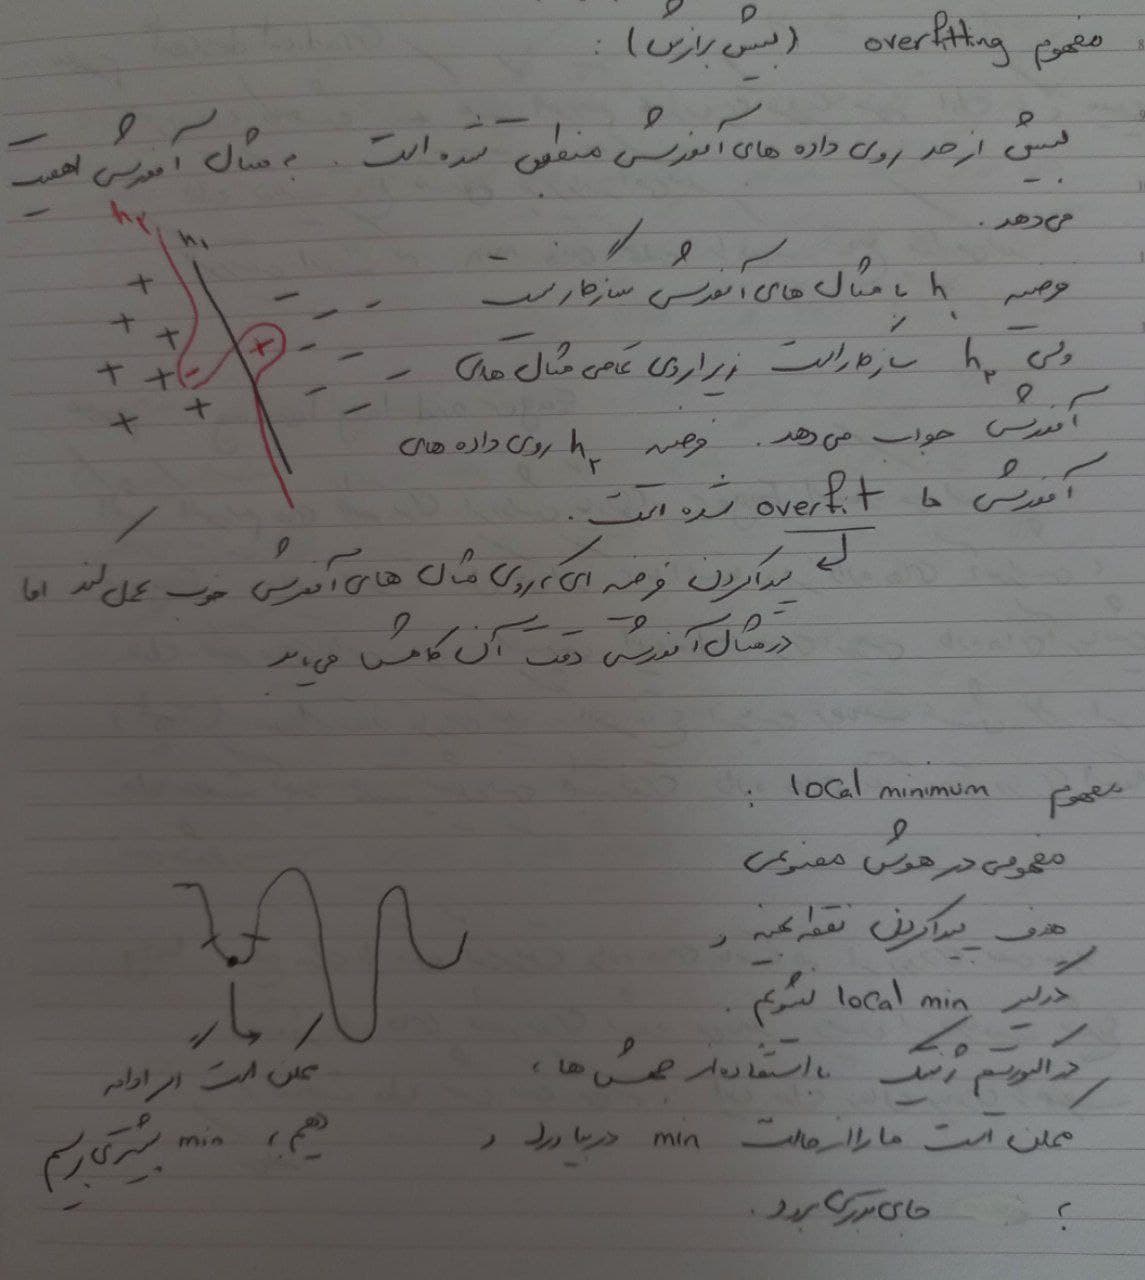 مفهوم overfitting (بیش برازش) :
بیش از حد روی داده های آموزشی منطبق شده است. به مثال آموزشی اهمیت
می دهد.
h۲
h۱
فرضیه h۱ با مثال های آموزشی سازگار نیست
ولی h۲ سازگار است زیرا روی تمامی مثال های
آموزشی جواب می دهد. فرضیه h۲ روی داده های
آموزشی ما overfit شده است.
پیدا کردن فرضیه ای که روی مثال های آموزشی خوب عمل کند اما
در مثال آموزشی دقت آن کاهش می یابد
مفهوم local minimum :
مفهومی در هوش مصنوعی
هدف پیدا کردن نقطه بهینه و
درگیر local min نشویم.
در الگوریتم ژنتیک با استفاده از جهش ها،
ممکن است ما را از حالت min در بیاورد و
به جای بهتری ببرد.
ممکن است اگر ادامه
دهیم، به min بیشتری برسیم